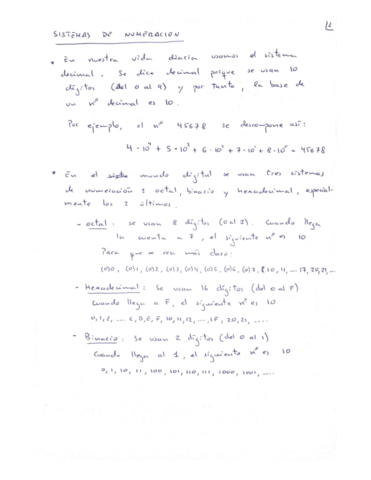 12
SISTEMAS DE NUMERACION
* En nuestra vida diaria usamos el sistema
decimal. Se dice decimal porque se usan 10
dígitos (del 0 al 9) y por tanto, la base de
un nº decimal es 10.
Por ejemplo, el nº 45678 se descompone así:
4·10⁴ + 5·10³ + 6·10² + 7·10¹ + 8·10⁰ = 45678
* En el mundo digital se usan tres sistemas
de numeración: octal, binario y hexadecimal, especial-
mente los 2 últimos.
- octal: se usan 8 dígitos (0 al 7). Cuando llega
la cuenta a 7, el siguiente nº es 10
Para que se vea más claro:
(0)0, (0)1, (0)2, (0)3, (0)4, (0)5, (0)6, (0)7, 10, 11, ... 17, 20, 21, ...
- Hexadecimal: Se usan 16 dígitos (del 0 al F)
Cuando llega a F, el siguiente nº es 10
0, 1, 2, .... C, D, E, F, 10, 11, 12, ..., 1F, 20, 21, ....
- Binario: Se usan 2 dígitos (del 0 al 1)
Cuando llega al 1, el siguiente nº es 10
0, 1, 10, 11, 100, 101, 110, 111, 1000, 1001, ....